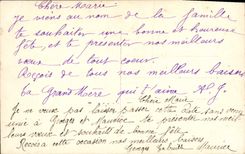 Chère Marie
je viens au nom de la famille
te souhaiter une bonne et heureuse
fête et te presenter nos meilleurs
vœux de tout cœur.
Reçois de tous nos meilleurs baisers
ta Grand Mère qui t'aime
Chère Marie
Je ne veux pas laisser passer cette
à Georges et Maurice te presenter nos
vœux et souhait de bonne fête
Reçois à cette occasion nos meilleurs baisers
Georges Maurice